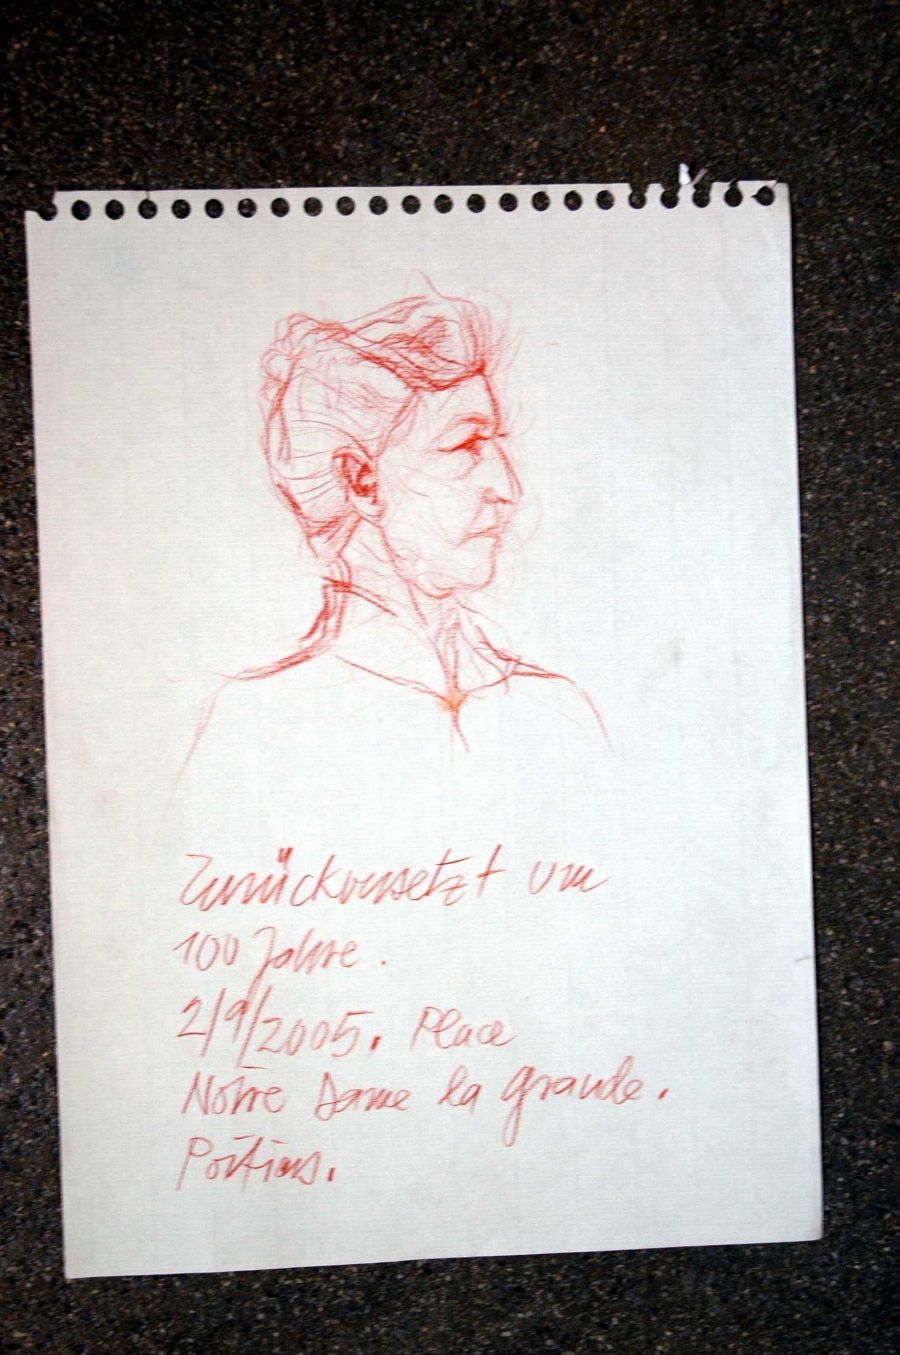 Zurückversetzt um
100 Jahre.
2/9/2005. Place
Notre Dame la grande.
Poitiers.